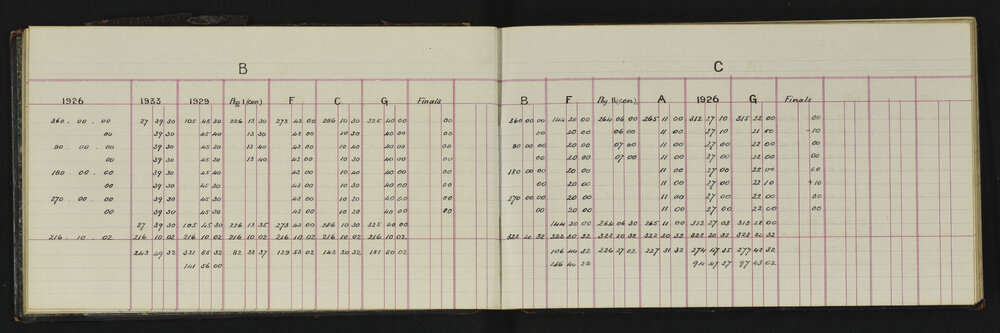 B
1926 1933 1929 Peg I (con) F C G Finals
360 . 00 . 00 27 39 30 105 45 30 226 13 30 273 43 00 286 10 30 325 40 00 00
00 39 30 45 40 13 30 43 00 10 30 40 00 00
90 . 00 . 00 39 30 45 20 13 40 43 00 10 40 40 00 00
00 39 30 45 30 13 40 43 00 10 40 40 00 00
180 . 00 . 00 39 30 45 30 43 00 10 20 40 00 00
00 39 30 45 30 43 00 10 40 40 00 00
270 . 00 . 00 39 30 45 30 43 00 10 30 40 00 00
00 39 30 45 30 43 00 10 20 40 00 00
27 39 30 105 45 30 226 13 35 273 43 00 286 10 30 325 40 00
216 . 10 . 02 216 10 02 216 10 02 216 10 02 216 10 02 216 10 02 216 10 02
243 49 32 321 55 32 82 23 37 129 53 02 142 20 32 181 50 02
141 56 00
C
B F Peg II (con) A 1926 G Finals
360 00 00 144 20 00 264 06 00 265 11 00 312 27 10 315 22 00 00
00 20 00 06 00 11 00 27 10 21 50 -10
90 00 00 20 00 07 00 11 00 27 00 22 00 00
00 20 00 07 00 11 00 27 00 22 00 00
180 00 00 20 00 11 00 27 00 22 00 00
00 20 00 11 00 27 00 22 10 +10
270 00 00 20 00 11 00 27 00 22 00 00
00 20 00 11 00 27 00 22 00 00
144 20 00 264 06 30 265 11 00 312 27 03 315 22 00
322 20 32 322 20 32 322 20 32 322 20 32 322 20 32 322 20 32
106 40 32 226 27 02 227 31 32 274 47 35 277 42 32
94 47 27 97 43 02